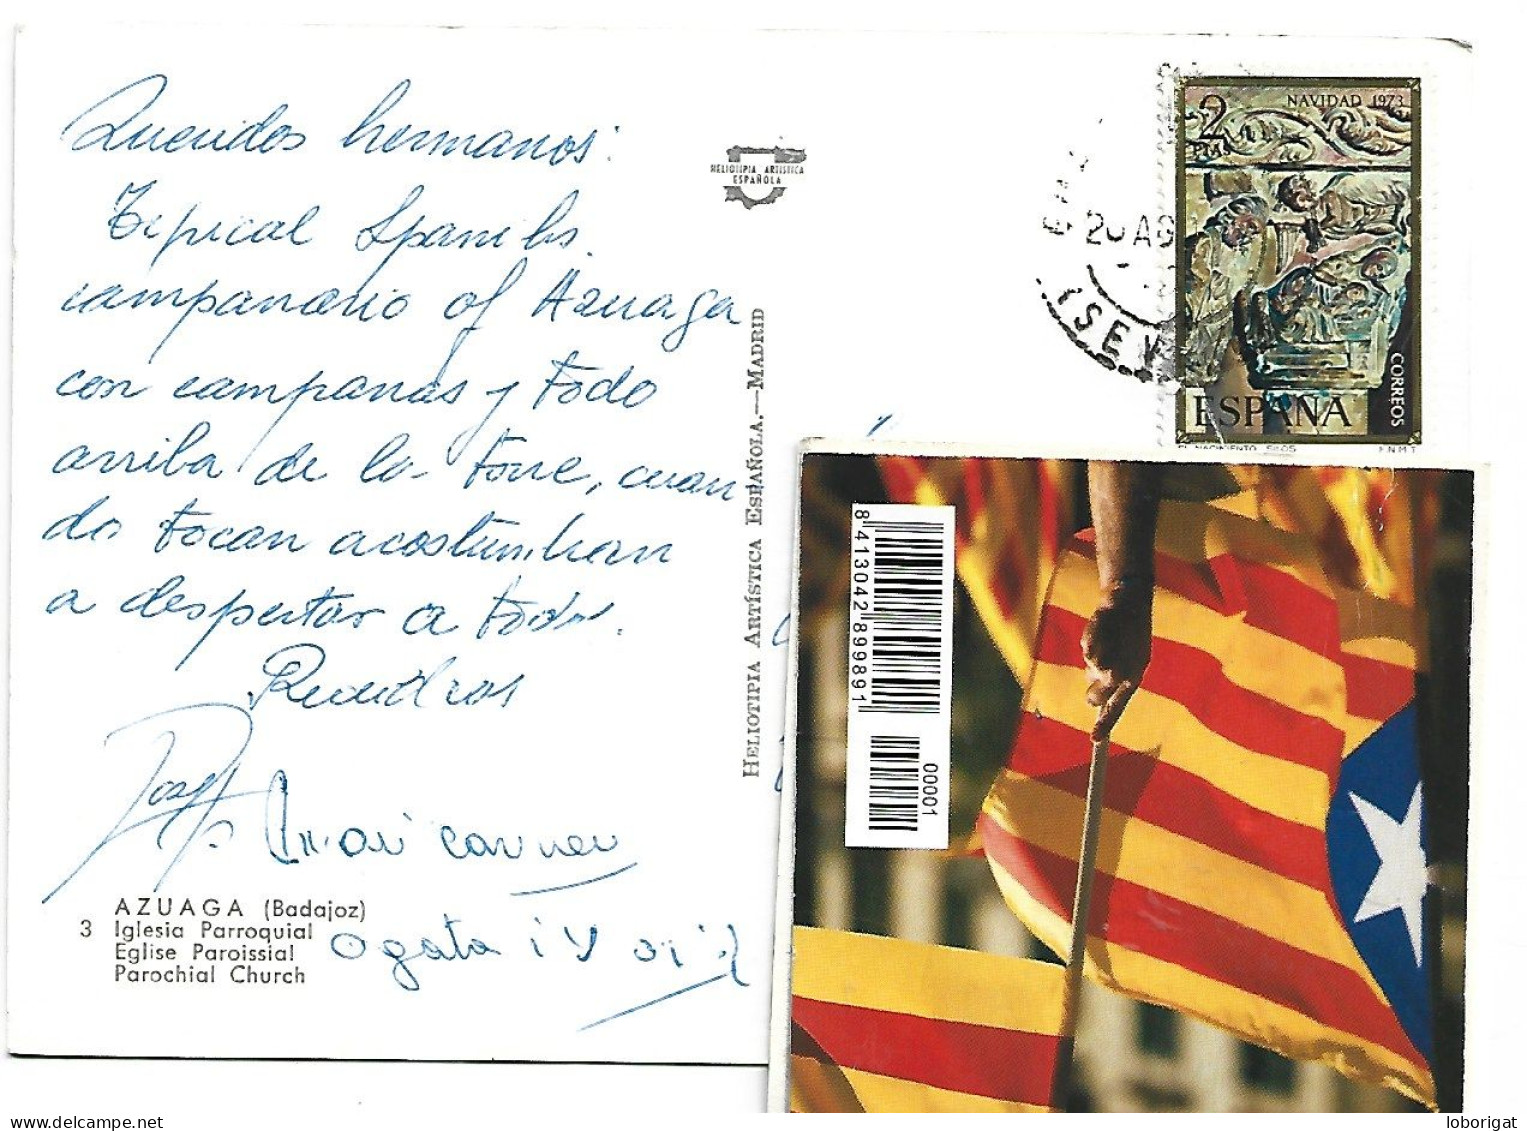 Queridos hermanos:
Tipical Spanihs.
campanario of Azuaga
con campanas y todo
arriba de la torre, cuan
do tocan acostumbran
a despertar a todos.
Recuerdos
Josep
Mari carmen
AZUAGA (Badajoz)
3 Iglesia Parroquial
Eglise Paroissial
Parochial Church
HELIOTIPIA ARTISTICA
ESPAÑOLA
HELIOTIPIA ARTÍSTICA ESPAÑOLA.—MADRID
20 AG
(SEV
2
PTAS
NAVIDAD 1973
CORREOS
ESPAÑA
EL NACIMIENTO. SILOS
F.N.M.T.
8 413042 899891
00001
loborigat